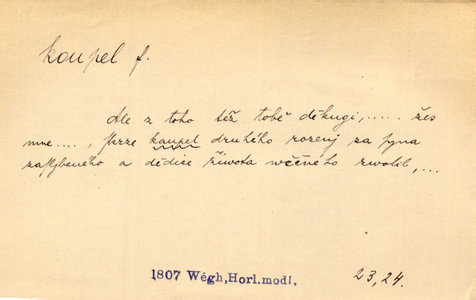 koupel f.
Ale z toho též tobě děkugi, ..... žes
mne ...., skrze kaupel druhého rozenj za syna
zaljbeného a dědice žiwota wěčného zwolil, ...
1807 Wégh, Horl. modl. 23, 24.